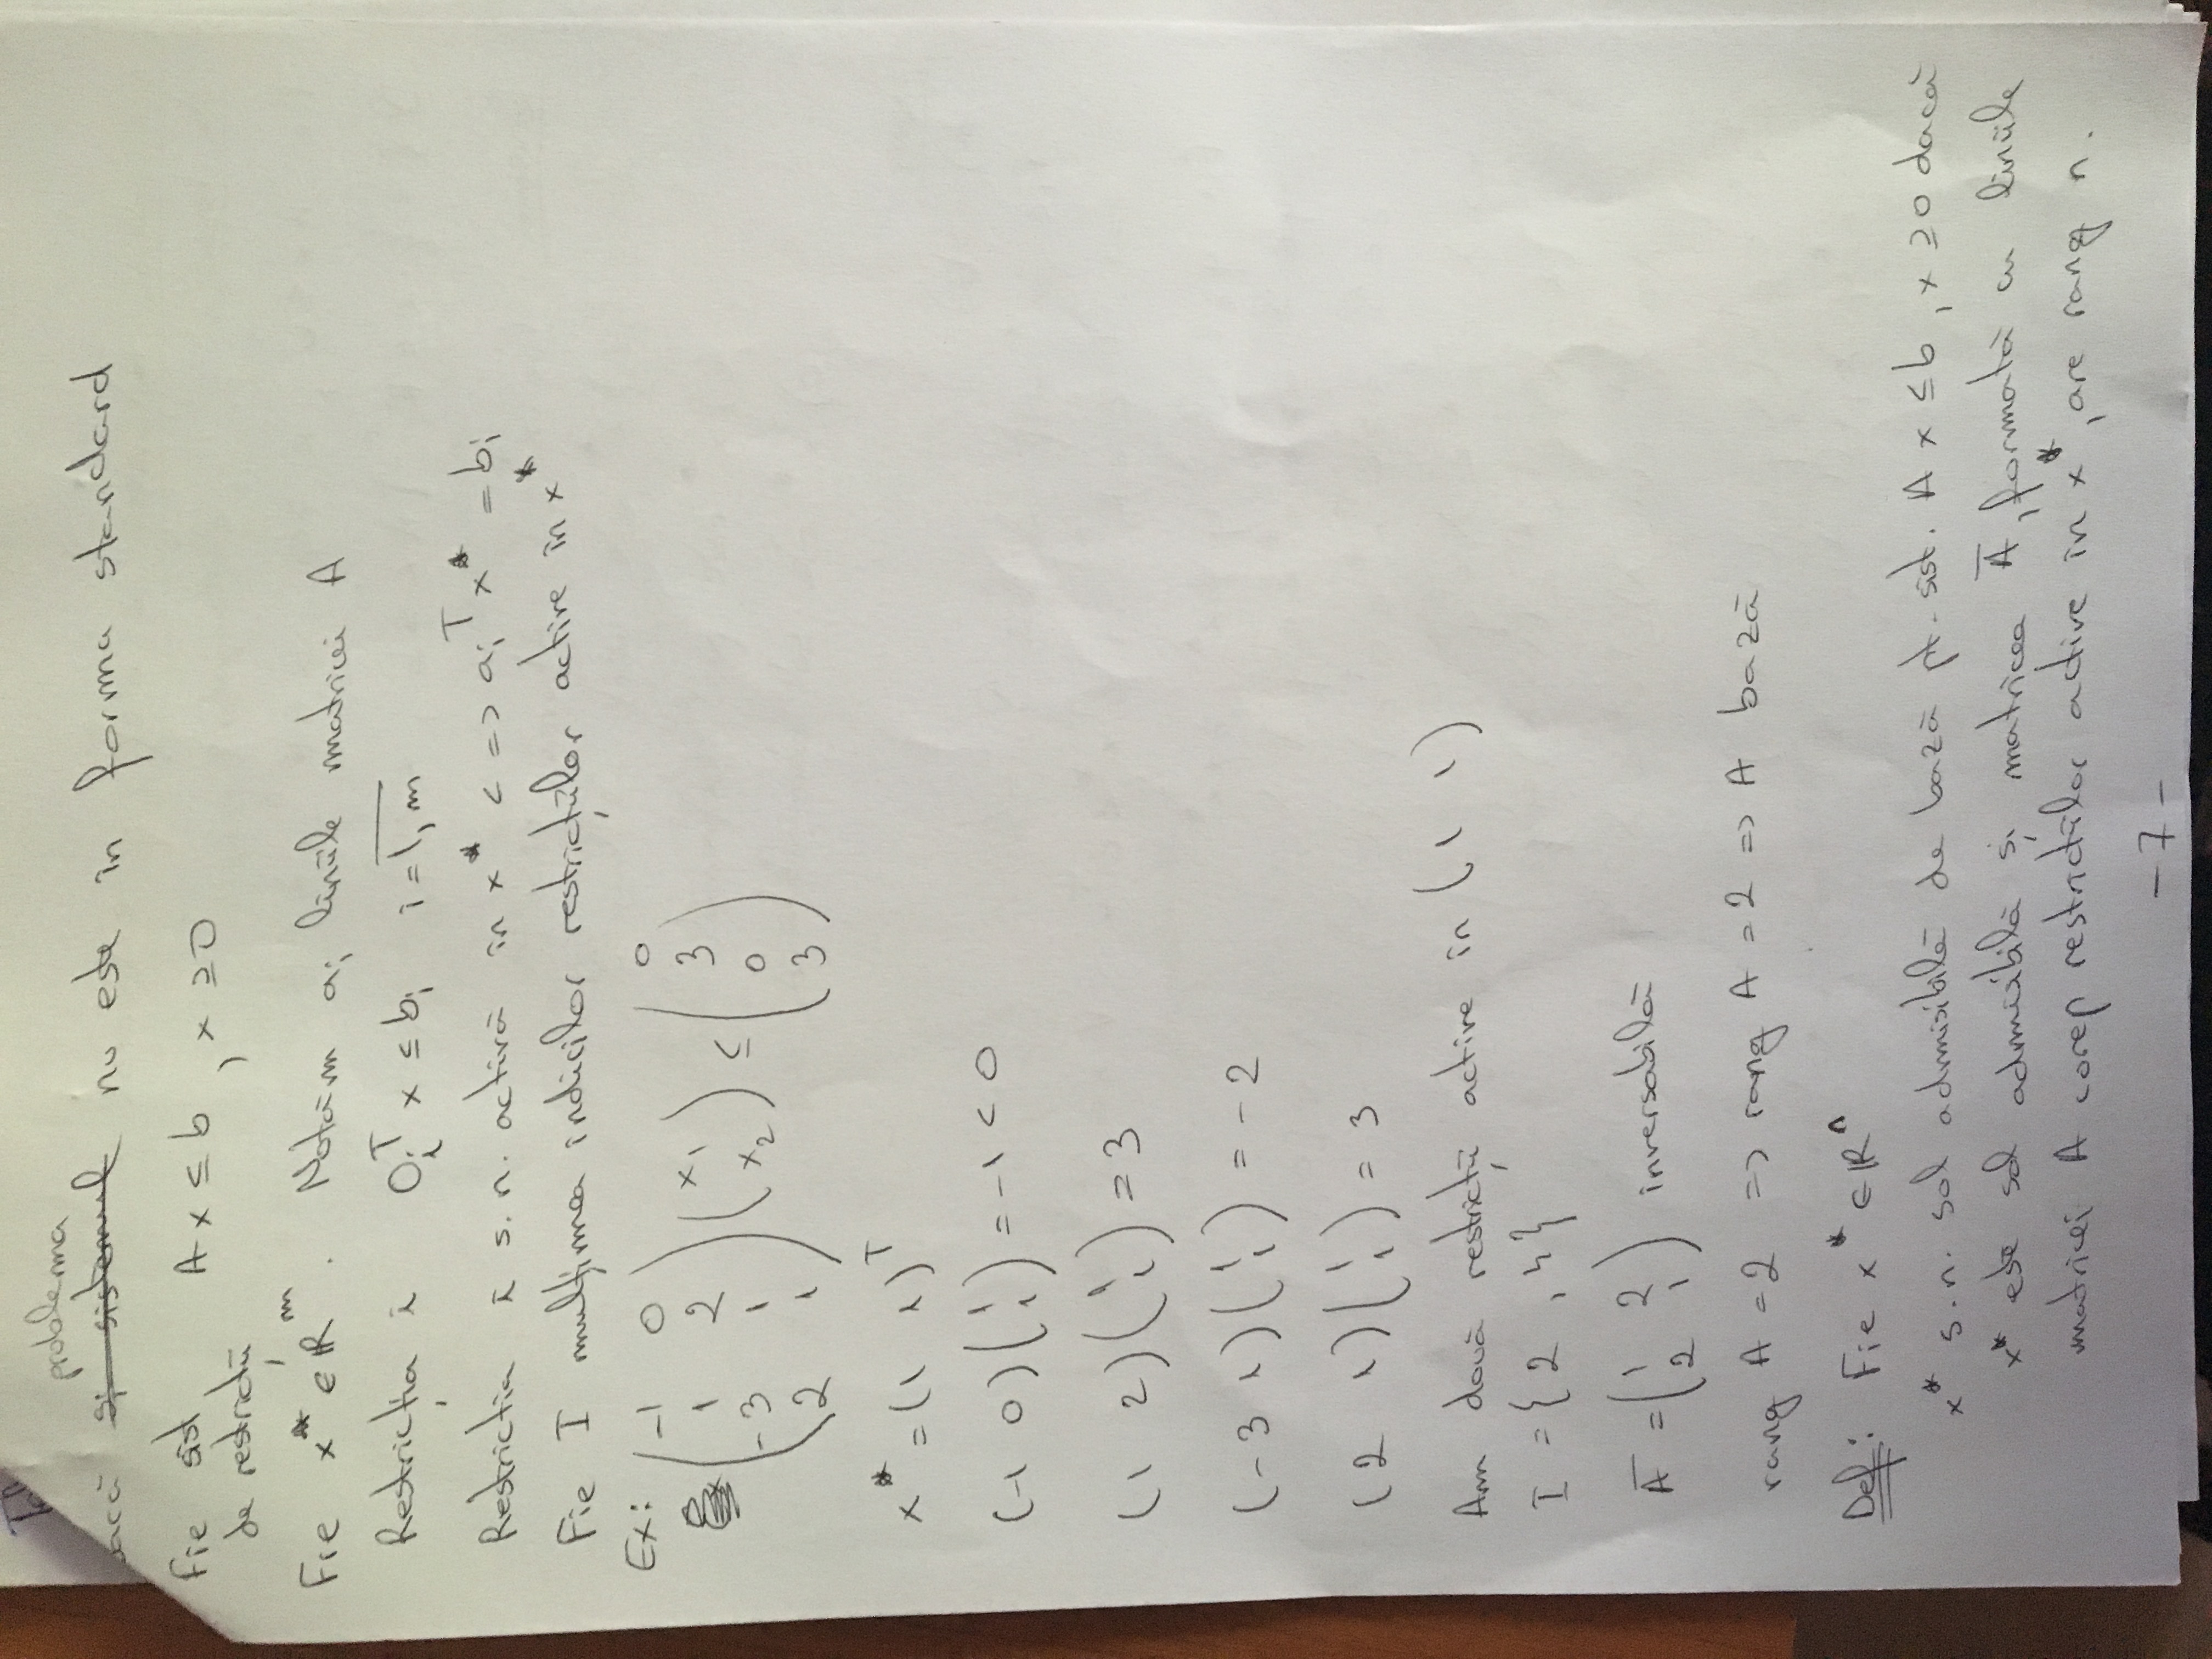 problema
dacă și sistemul nu este in forma standard
Fie sist A x ≤ b , x ≥ 0
de restricții
Fie x* ∈ ℝⁿ . Notăm aᵢ liniile matricei A
Restricția i aᵢᵀ x ≤ bᵢ i = 1,m
Restricția i s.n. activă in x* <=> aᵢᵀ x* = bᵢ
Fie I mulțimea indicilor restricțiilor active în x*
Ex: (-1 0 / 1 2 / -3 1 / 2 1) (x₁ / x₂) ≤ (0 / 3 / 0 / 3)
x* = (1 1)ᵀ
(-1 0) (1 / 1) = -1 < 0
(1 2) (1 / 1) = 3
(-3 1) (1 / 1) = -2
(2 1) (1 / 1) = 3
Am două restricții active in (1 1)
I = {2, 4}
A̅ = (1 2 / 2 1) inversabilă
rang A = 2 => rang A = 2 => A bază
Def: Fie x* ∈ ℝⁿ
x* s.n. sol admisibilă de bază pt. sist. A x ≤ b , x ≥ 0 dacă
x* este sol admisibilă și matricea A̅, formată cu liniile
matricei A coresp restricțiilor active in x*, are rang n.
- 7 -